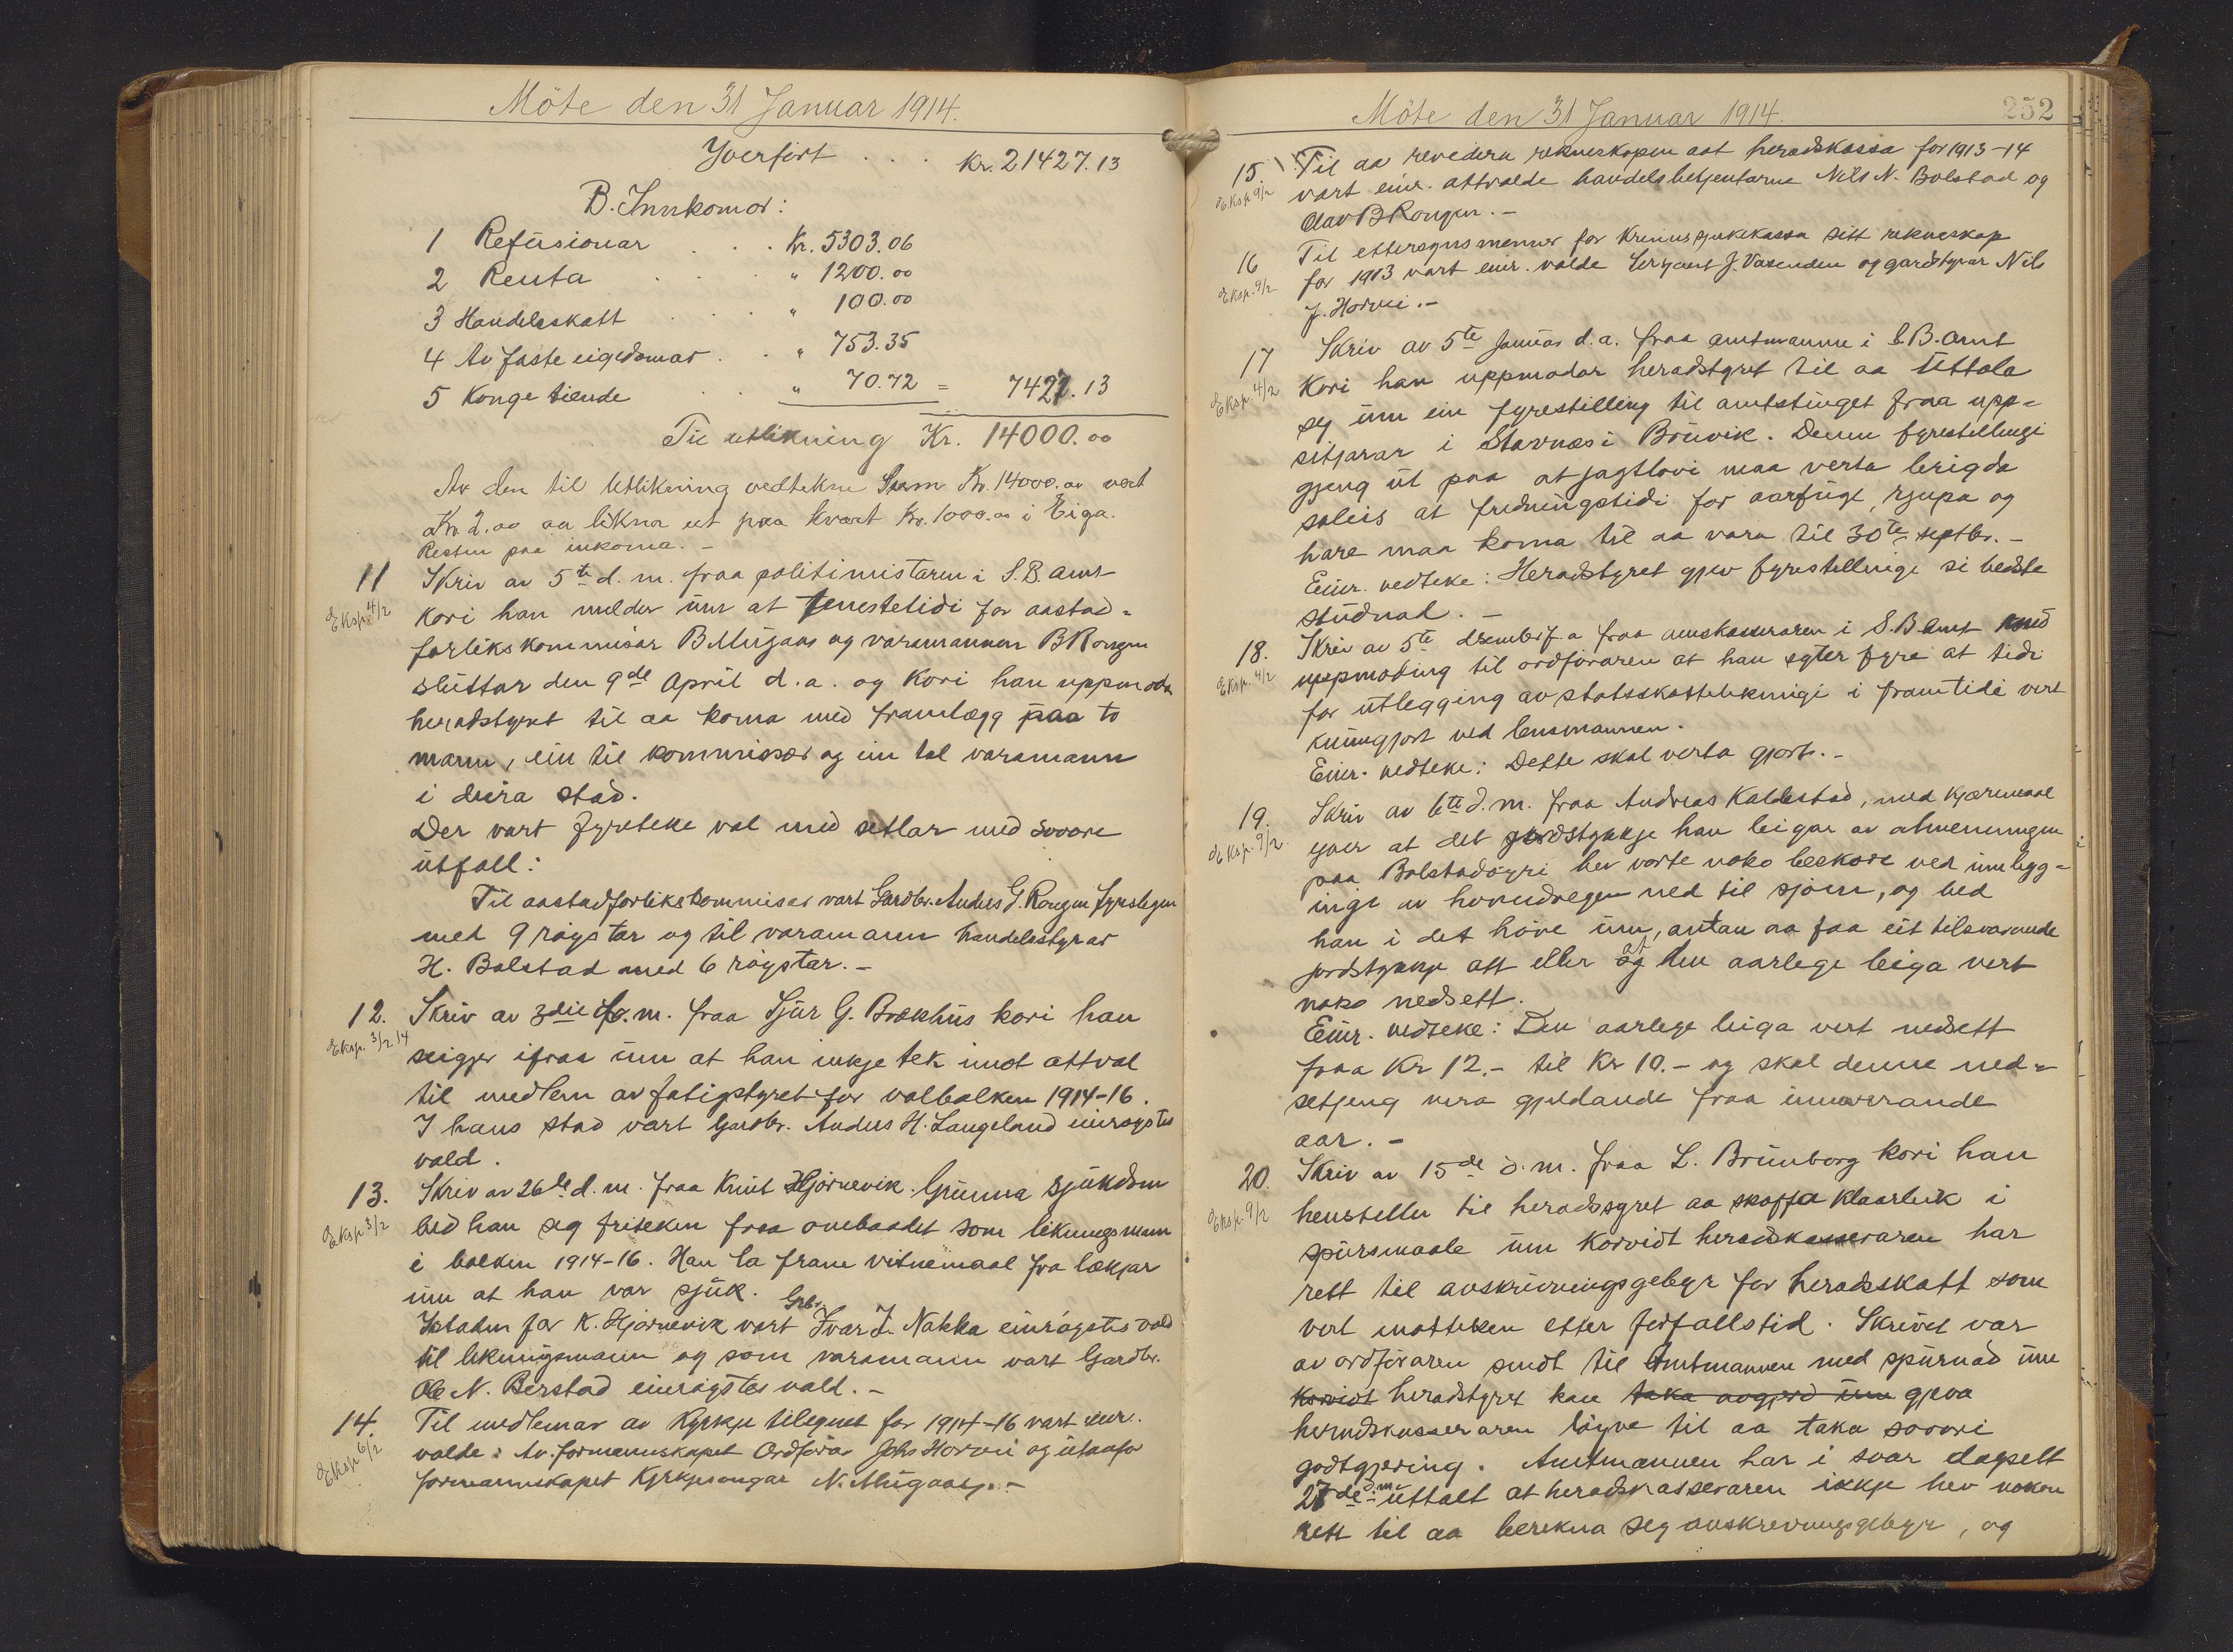 Möte den 31 Januar 1914.
Yverfört . . . Kr. 21427.13
B. Innkomor:
1 Refusionar . . . Kr. 5303.06
2 Renta . . . " 1200.00
3 Handelsskatt . . . " 100.00
4 Av faste eigedomar . . " 753.35
5 Konge tiende . . " 70.72 = 7427.13
Til utlikning Kr. 14000.00
Av den til Utlikning vedtekne Sum Kr. 14000.00 vert
Kr. 2.00 aa likna ut paa kvart Kr. 1000.00 i Eiga.
Resten paa inkoma. -
11 Skriv av 5te d. m. fraa politimistaren i S.B. amt
Eksp. 4/2 kori han melder um at tenestetidi for aastad-
forlikskommisær B Mugaas og varamannen B Rongen
sluttar den 9de April d.a. og kori han uppmoda
heradstyret til aa koma med framlegg paa to
mann, ein til kommissær og ein til varamann
i deira stad.
Der vart fyreteke val med setlar med soovre
utfall:
Til aastadforlikskommisær vart Gardbr. Anders G. Rongen fyreslegen
med 9 röystar og til varamann handelsstyrar
H. Bolstad med 6 röystar. -
12. Skriv av 3die f. m. fraa Sjur G. Brækhus kori han
Eksp. 3/2 14 seigjer ifraa um at han inkje tek imot attval
til medlem av fatigstyret for valbolken 1914-16.
I hans stad vart Gardbr. Anders H. Langeland einröystes
vald.
13. Skriv av 26de d. m. fraa Knut Hjörnevik. Grunna sjukdom
Eksp 3/2 bed han seg friteken fraa ombaadet som likningsmann
i bolken 1914-16. Han la fram vitnemaal fra lækjar
um at han var sjuk.
Istaden for K. Hjörnevik vart Grbr. Ivar L. Nakka einröystes vald
til likningsmann og som varamann vart Gardbr.
Ole N. Berstad einröystes vald. -
14. Til medlemar av Kyrkje tilsynet for 1914-16 vart einr.
Eksp 6/2 valde: Av formannskapet Ordförar Johs Horvei og utanfor
formannskapet Kyrkjesongar N. Mugaas. -
Möte den 31 Januar 1914. 252
15. Til aa revedera rekneskapen aat heradskassa for 1913-14
Eksp 9/2 vart einr. attvalde handelsbetjentarne Nils N. Bolstad og
Olav B Rongen. -
16 Til ettersynsmenner for Krinssjukekassa sitt rekneskap
Eksp. 9/2 for 1913 vart einr. valde Sersjant J. Vasenden og gardstyrar Nils
J. Horvei. -
17 Skriv av 5te Januar d.a. fraa amtmannen i S.B. amt
Eksp. 4/2 Kori han uppmodar heradstyret til aa Uttala
seg um ein fyrestilling til amtstinget fraa upp-
sitjarar i Stavnæs i Brüvik. Denne fyrestellingi
gjeng ut paa at jagtlovi maa verta brigda
soleis at fredningstidi for aarfugl, rjupa og
hare maa koma til aa vara til 30te septbr. -
Einr. vedteke: Heradstyret gjev fyrestellingi si beste
studnad. -
18. Skriv av 5te desember f.a fraa amtskasseraren i S.B amt med
Eksp. 4/2 uppmoding til ordföraren at han syter fyre at tidi
for utlegging av statsskattelikningi i framtidi vert
kunngjort ved lensmannen.
Einr. vedteke: Dette skal verta gjort. -
19. Skriv av 6te d.m. fraa Andreas Kaldestad, med kjæremaal
Eksp. 9/2 yver at det jordstykkje han leigar av almenningen
paa Bolstadöyri hev vorte noko beskore ved umlegg-
ingi av hovudvegen ned til sjöen, og bed
han i det höve um, antan aa faa eit tilsvarande
jordstykkje att eller at den aarlege leiga vert
noko nedsett.
Einr. vedteke: Den aarlege leiga vert nedsett
fraa Kr 12.- til Kr 10.- og skal denne ned-
setjeng vera gjeldande fraa inneverande
aar. -
20. Skriv av 15de d.m. fraa L. Brunborg kori han
Eksp. 9/2 henstiller til heradsyret aa skaffa klaarleik i
spursmaale um korvidt heradskasseraren har
rett til avskrivningsgebyr for heradsskatt som
vert motteken etter forfallstid. Skrivet var
av ordföraren sendt til Amtmannen med spurnad um
korvidt heradstyret kan taka avgjerd um gjeva
heradskasseraren löyve til aa taka soovri
godtgjering. Amtmannen har i svar dagsett
27de d.m. uttalt at heradskasseraren ikkje hev nokon
rett til aa berekna seg avskrivningsgebyr, og